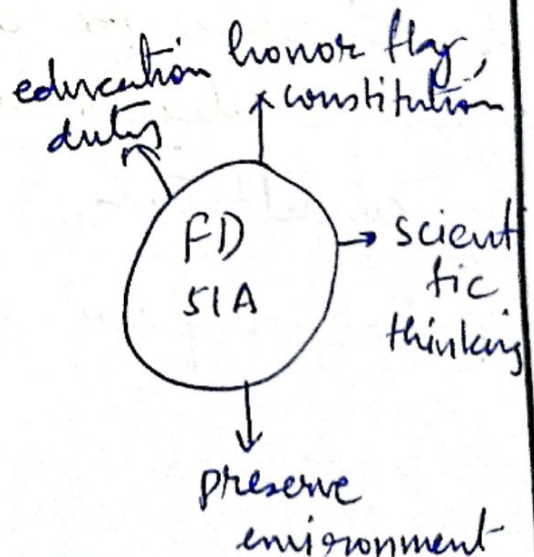 education
duty
honor flag,
constitution
FD
51A
scient
fic
thinking
preserve
environment